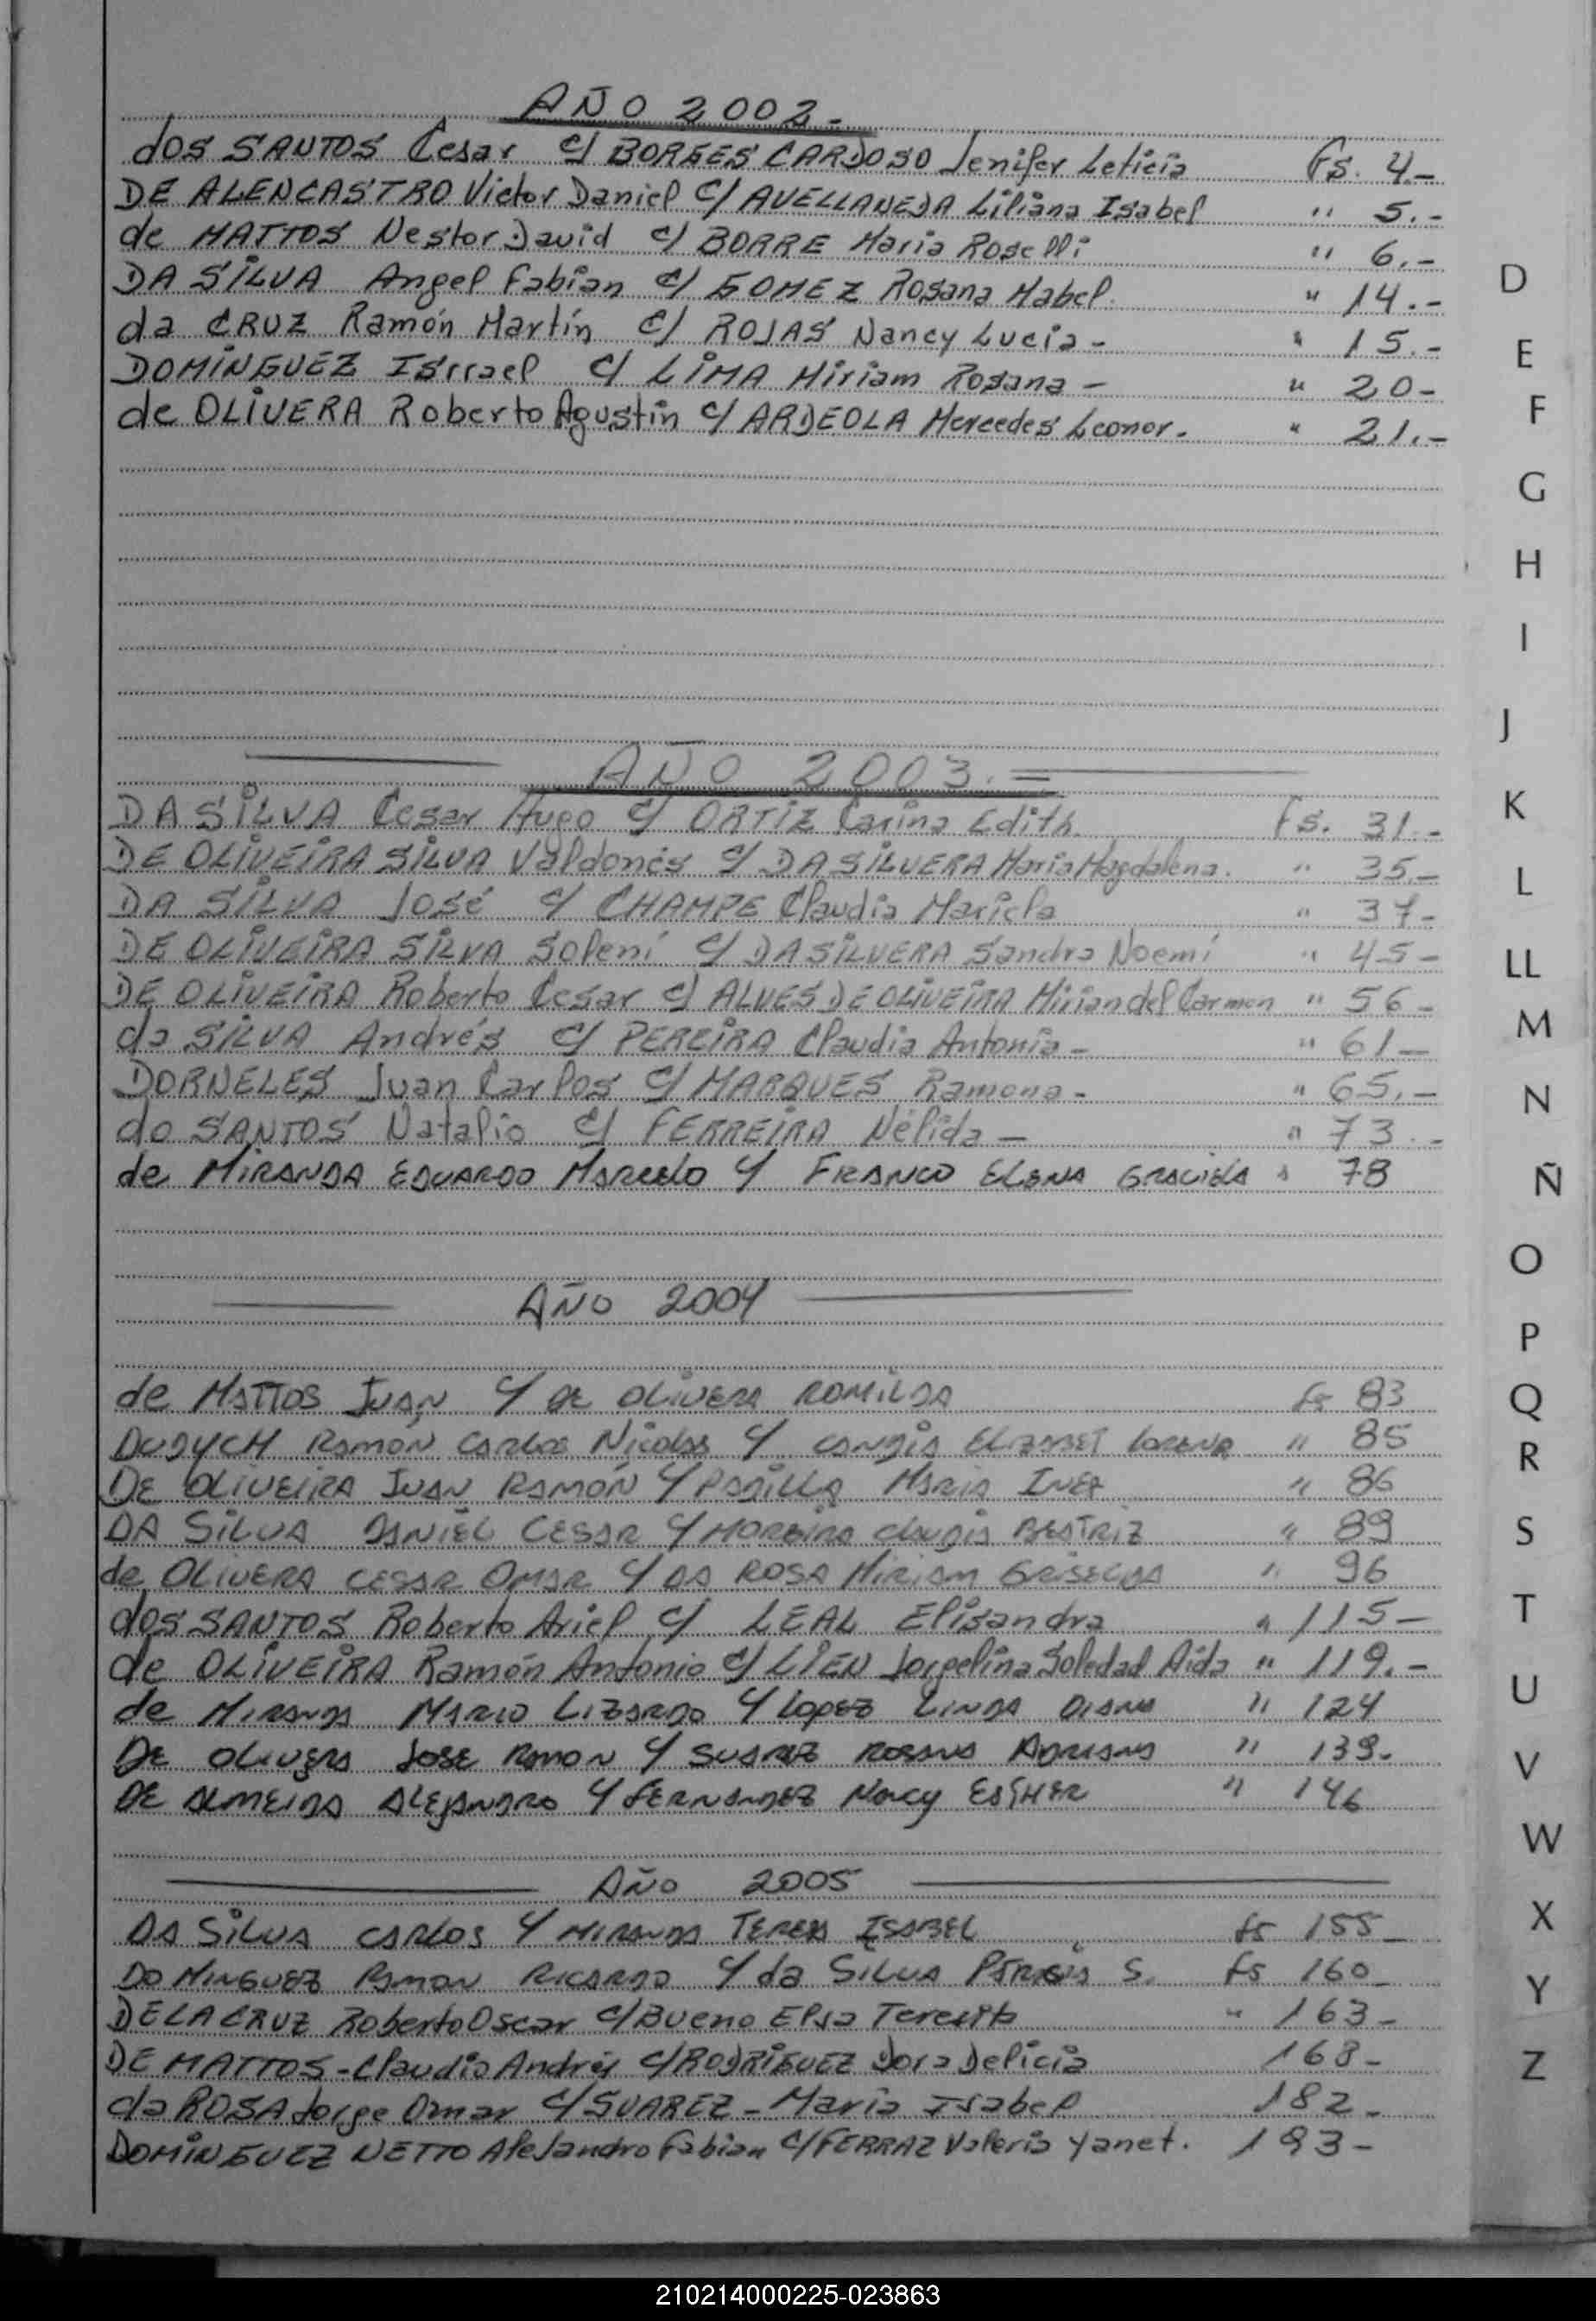 AÑO 2002.-
dos SANTOS Cesar c/ BORGES CARDOSO Jenifer Leticia Fs. 4.-
DE ALENCASTRO Victor Daniel c/ AVELLANEDA Liliana Isabel " 5.-
de MATTOS Nestor David c/ BORRE Maria Roselli " 6.-
DA SILVA Angel Fabian c/ GOMEZ Rosana Mabel. " 14.-
da CRUZ Ramón Martín c/ ROJAS Nancy Lucia - " 15.-
DOMINGUEZ Isrrael c/ LIMA Miriam Rosana - " 20-
de OLIVERA Roberto Agustin c/ ARDEOLA Mercedes Leonor. " 21.-
AÑO 2003.=
DA SILVA Cesar Hugo c/ ORTIZ Carina Edith. Fs. 31.-
DE OLIVEIRA SILVA Valdonés c/ DA SILVERA Maria Magdalena. " 35.-
DA SILVA José c/ CHAMPE Claudia Mariela " 37-
DE OLIVEIRA SILVA Solení c/ DA SILVERA Sandra Noemí " 45-
DE OLIVEIRA Roberto Cesar c/ ALVES DE OLIVEIRA Mirian del Carmen " 56-
da SILVA Andrés c/ PEREIRA Claudia Antonia - " 61-
DORNELES Juan Carlos c/ MARQUES Ramona - " 65.-
do SANTOS Natalio c/ FERREIRA Nélida - " 73.-
de MIRANDA EDUARDO Marcelo c/ FRANCO ELENA GRACIELA " 78
AÑO 2004
de MATTOS JUAN c/ DE OLIVERA ROMILDA fs 83
DUDYCH RAMÓN CARLOS Nicolas c/ CANDIA ELIZABET LORENA " 85
DE OLIVEIRA JUAN RAMÓN c/ PADILLA MARIA INES " 86
DA SILVA DANIEL CESAR c/ MOREIRA CLAUDIA BEATRIZ " 89
de OLIVERA CESAR OMAR c/ DA ROSA MIRIAM GRISELDA " 96
dos SANTOS Roberto Ariel c/ LEAL Elisandra " 115-
de OLIVEIRA Ramón Antonio c/ LIEN Jorgelina Soledad Aida " 119.-
de MIRANDA MARIO LIZARDO c/ LOPEZ LINDA DIANA " 124
DE OLIVERA JOSE RAMON c/ SUAREZ ROSANA ADRIANA " 139.
DE ALMEIDA ALEJANDRO c/ FERNANDEZ Nancy ESTHER " 146
AÑO 2005
DA SILVA CARLOS c/ MIRANDA TERESA ISABEL fs 155-
DOMINGUEZ RAMON RICARDO c/ da SILVA S. fs 160-
DE LA CRUZ Roberto Oscar c/ Bueno Elsa Teresita " 163-
DE MATTOS - Claudio Andrés c/ RODRIGUEZ Dora Delicia 168-
da ROSA Jorge Omar c/ SUAREZ - Maria Isabel 182-
DOMINGUEZ NETTO Alejandro Fabian c/ FERRAZ Valeria Yanet. 193-
D
E
F
G
H
I
J
K
L
LL
M
N
Ñ
O
P
Q
R
S
T
U
V
W
X
Y
Z
210214000225-023863